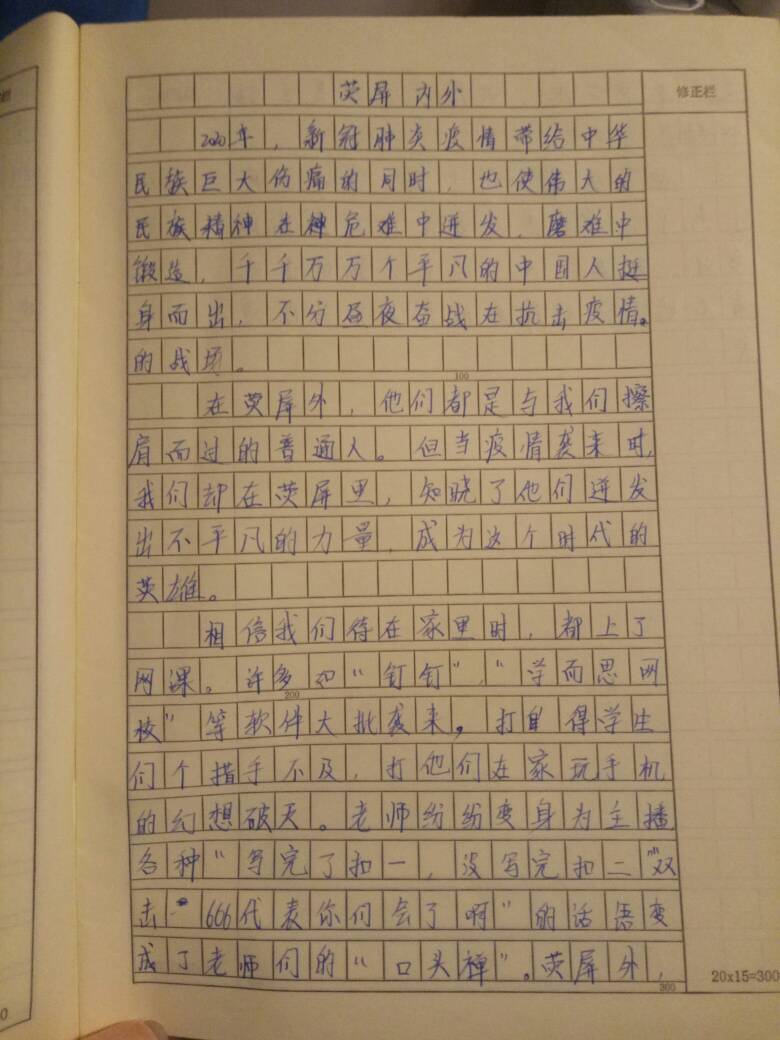 荧屏内外
修正栏
2020年，新冠肺炎疫情带给中华
民族巨大伤痛的同时，也使伟大的
民族精神在神危难中迸发，磨难中
锻造，千千万万个平凡的中国人挺
身而出，不分昼夜奋战在抗击疫情。
的战场。
100
在荧屏外，他们都是与我们擦
肩而过的普通人。但当疫情袭来时，
我们却在荧屏里，知晓了他们迸发
出不平凡的力量，成为这个时代的
英雄。
相信我们待在家里时，都上了
网课。许多如“钉钉”，“学而思网
200
校”等软件大批袭来，打自得学生
们个措手不及，打他们在家玩手机
的幻想破灭。老师纷纷变身为主播，
各种“写完了扣一，没写完扣二”“双
击666代表你们会了啊”的话语变
成了老师们的“口头禅”。荧屏外，
300
20x15=300